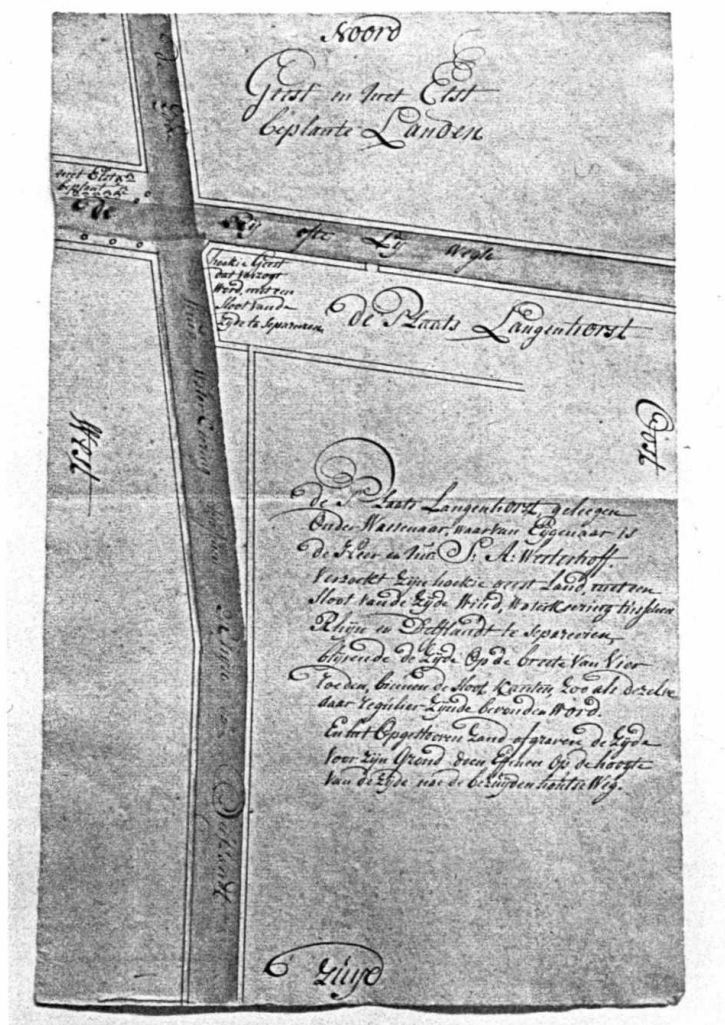 Noord
Geest en met Elst
beplante Landen
met Elst
beplant
de
Rij ofte Lij Wegh
hoekie Geest
dat verzogt
Word, met een
sloot vande
Zijde te separeren
de Plaats Langenhorst
West
Oost
de Plaats Langenhorst, gelegen
Onder Wassenaar, waar van Eijgenaar is
de Heer en Mr. S: A: Westerhoff.
Verzoekt Zijn hoekie geest Land, met een
sloot vande Zijde Wind, Waterkeering tusschen
Rhijn en Delflandt te separeeren,
blijvende de Zijde Op de breete Van Vier
roeden, binnen de sloot Kanten, zoo als dezelve
daar regulier Zijnde bevonden Word.
En het Opgestooven Zand of gravene de Zijde
Voor Zijn Grond doen Egenen Op de hoogte
Van de Zijde na de bezuijdenhoutse Weg.
Rhijn en Delflandt
Zuijd